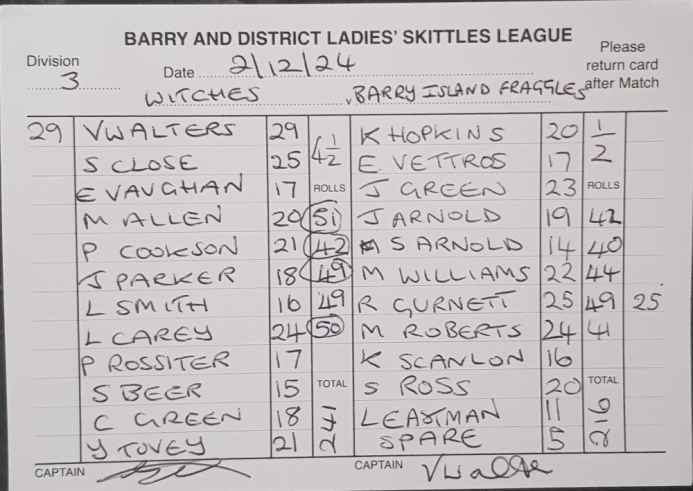 BARRY AND DISTRICT LADIES' SKITTLES LEAGUE
Division 3
Date 2/12/24
Please return card after Match
WITCHES v BARRY ISLAND FRAGGLES
29 V WALTERS 29 4 1/2 K HOPKINS 20 1/2
S CLOSE 25 E. VETTROS 17
E VAUGHAN 17 ROLLS J GREEN 23 ROLLS
M ALLEN 20 51 J ARNOLD 19 42
P COOKSON 21 42 S ARNOLD 14 40
J PARKER 18 49 M WILLIAMS 22 44
L SMITH 16 49 R GURNETT 25 49 25
L CAREY 24 50 M ROBERTS 24 41
P ROSSITER 17 K SCANLON 16
S BEER 15 TOTAL S ROSS 20 TOTAL
C GREEN 18 241 LEAKMAN 11 216
Y TOVEY 21 SPARE 5
CAPTAIN CAPTAIN V Walte